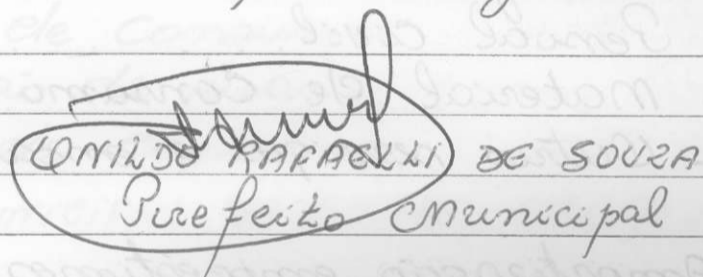 ONILDO RAFAELLI DE SOUZA
Prefeito Municipal